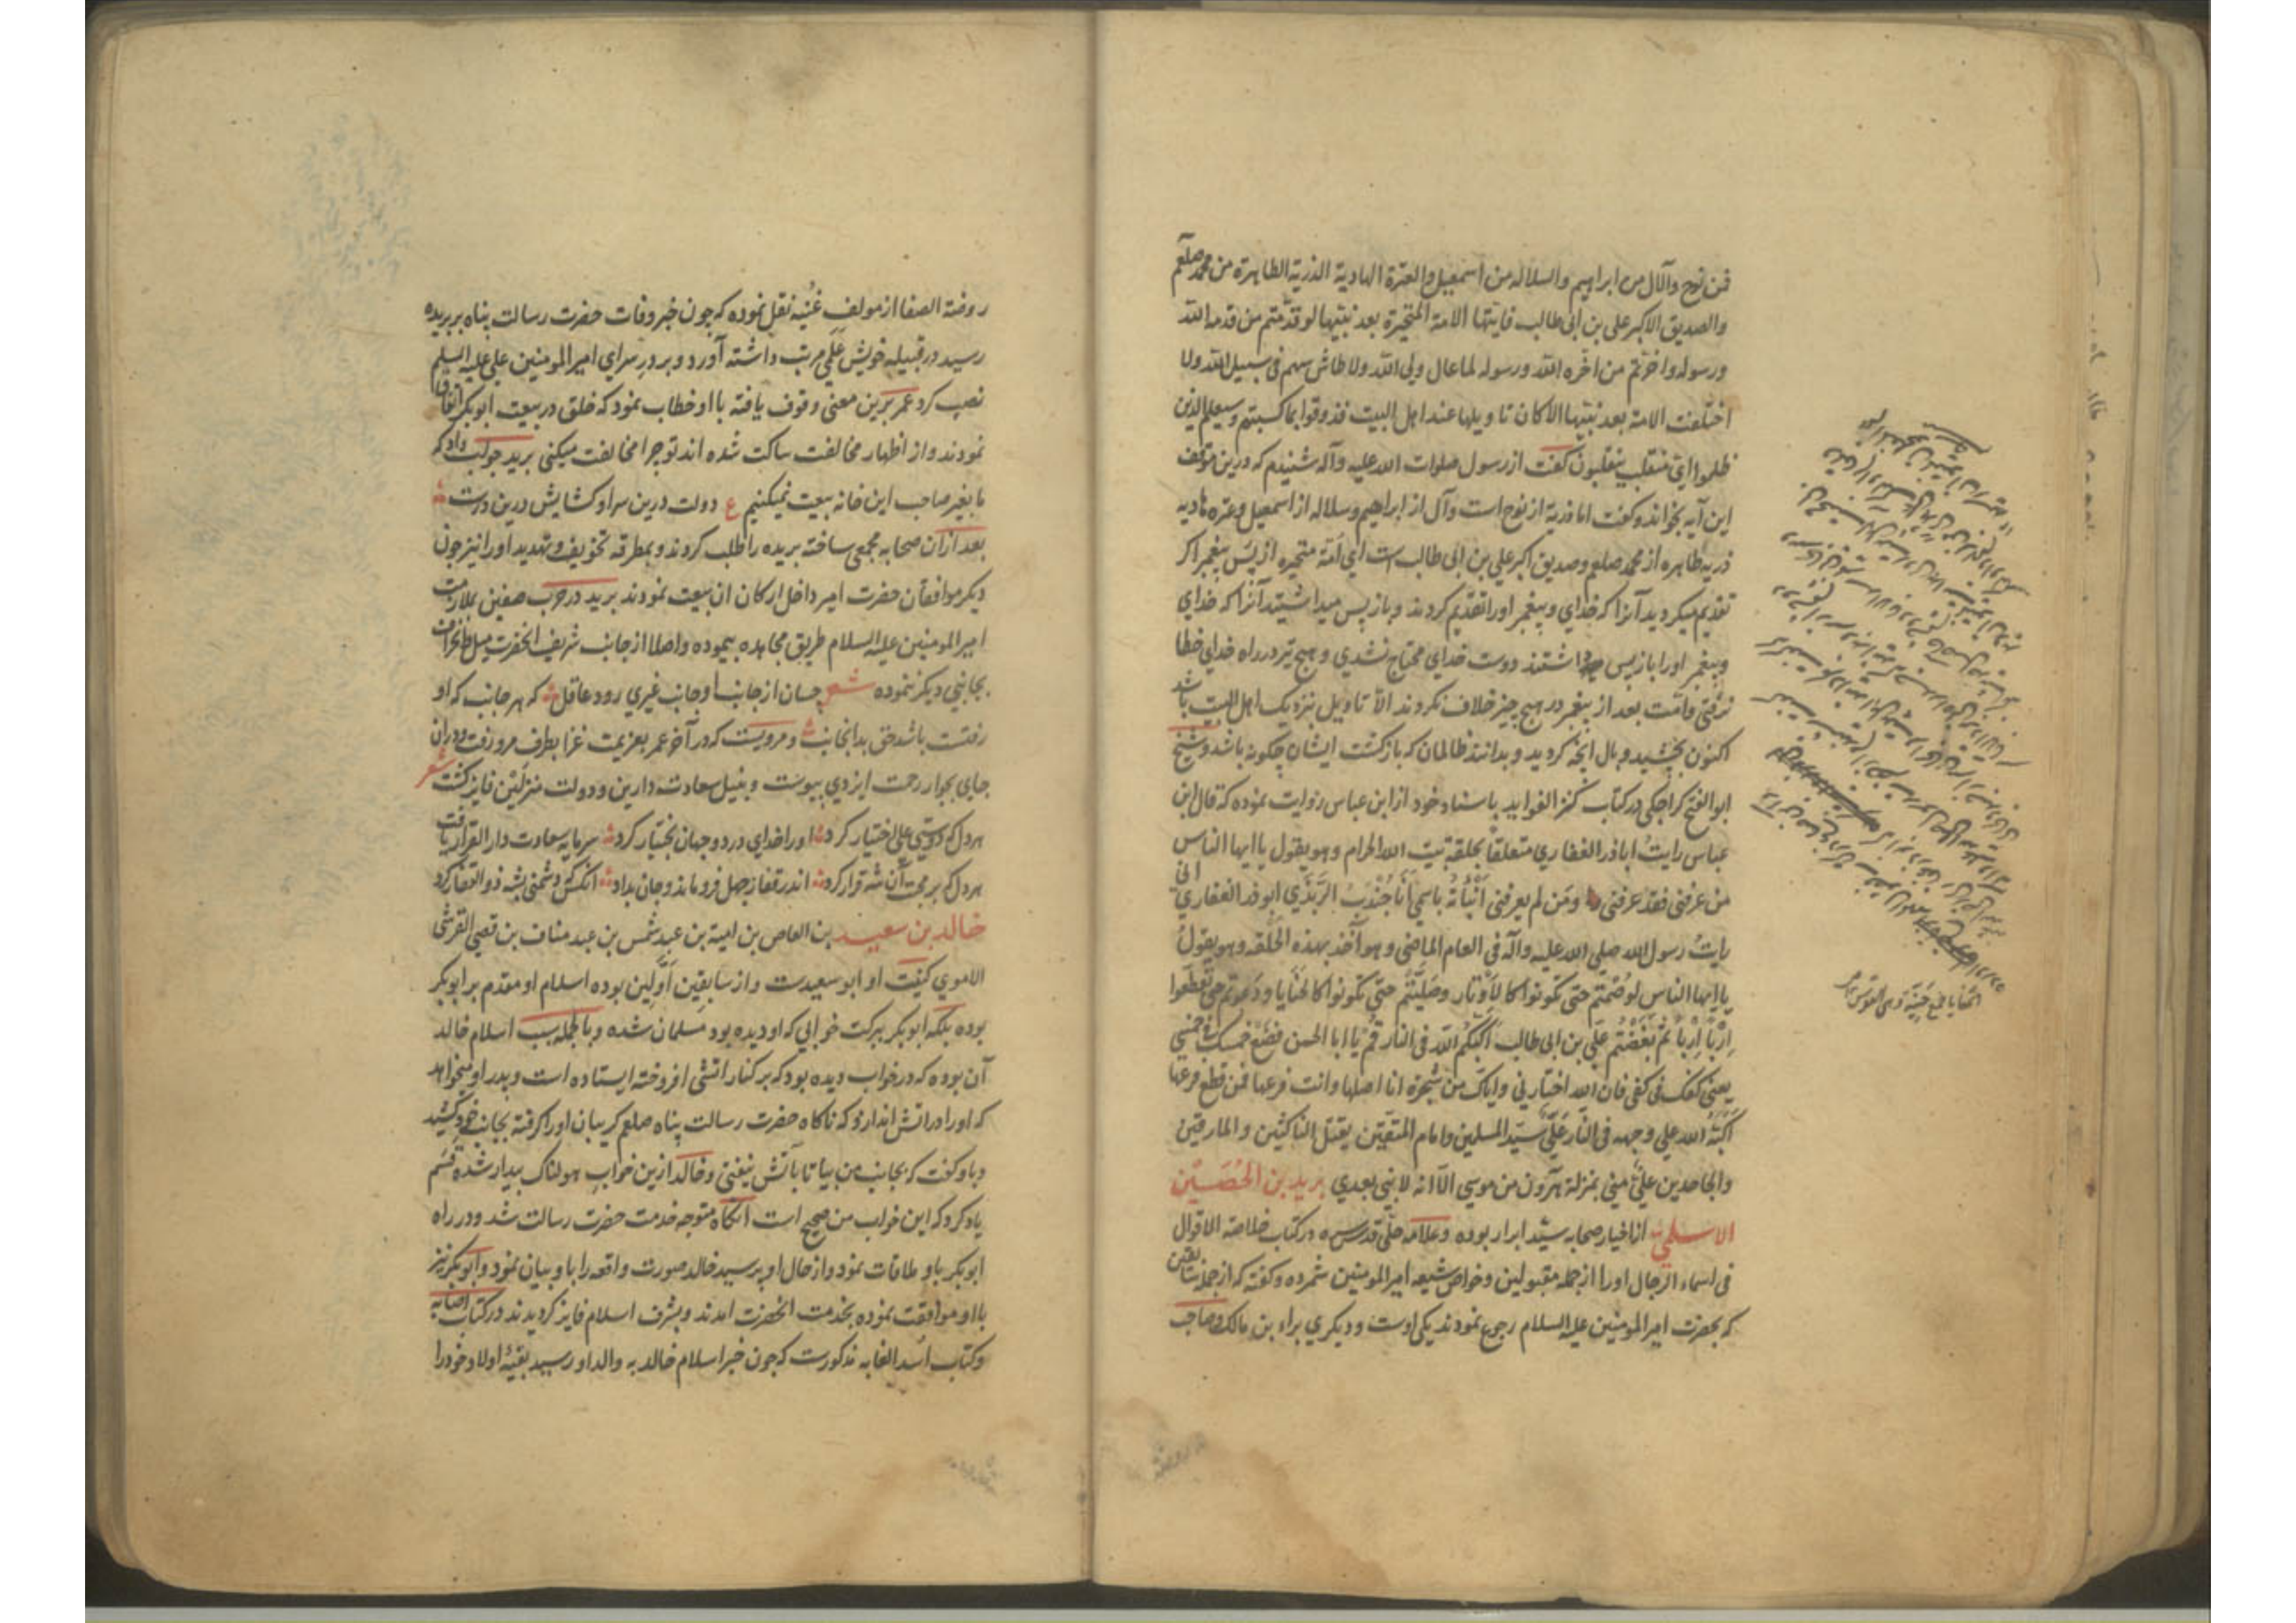 فمن نوح والآل من ابراهیم والسلاله من اسمعیل والعترة الهادیة الذریة الطاهرة من محمد صلعم
والصدیق الاکبر علی بن ابی طالب فایتها الامة المتحیرة بعد نبیها لو قدمتم من قدمه الله
ورسوله واخرتم من اخره الله ورسوله لما عال ولی الله ولا طاش سهم فی سبیل الله ولا
اختلفت الامة بعد نبیها الا کان تاویلها عند اهل البیت فذوقوا بما کسبتم وسیعلم الذین
ظلموا ای منقلب ینقلبون گفت از رسول صلوات الله علیه وآله شنیدم که درین موقف
این آیه بخواند و گفت اما ذریة از نوح است وآل از ابراهیم وسلاله از اسمعیل وعتره هادیه
ذریه طاهره از محمد صلعم وصدیق اکبر علی بن ابی طالب است ای امة متحیره از پس پیغمبر اکر
تقدیم میکردید آنرا که خدای وپیغمبر اورا تقدیم کردند وبازپس میداشتید آنرا که خدای
وپیغمبر اورا بازپس داشتند دوست خدای محتاج نشدی وهیچ تیر در راه خدای خطا
نرفتی وامت بعد از پیغمبر در هیچ چیز خلاف نکردند الا تاویل نزدیک اهل البیت باشد
اکنون بچشید وبال انچه کردید وبدانند ظالمان که بازکشت ایشان چکونه باشد وشیخ
ابوالفتح کراجکی در کتاب کنز الفواید باسناد خود از ابن عباس روایت نموده که قال ابن
عباس رایت اباذر الغفاری متعلقا بحلقة بیت الله الحرام وهو یقول یا ایها الناس
من عرفنی فقد عرفنی ومن لم یعرفنی انبأته باسمی انا جندب الربذی ابوذر الغفاری انی
رایت رسول الله صلی الله علیه وآله فی العام الماضی وهو آخذ بهذه الحلقة وهو یقول
یا ایها الناس لو صمتم حتی تکونوا کالاوتار وصلیتم حتی تکونوا کالحنایا ودعوتم حتی تقطعوا
اربا اربا ثم بغضتم علی بن ابی طالب اکبکم الله فی النار قم یا ابا الحسن فضع خمسک فی خمسی
یعنی کفک فی کفی فان الله اختارنی وایاک من شجرة انا اصلها وانت فرعها فمن قطع فرعها
اکبه الله علی وجهه فی النار علی سید المسلمین وامام المتقین یقتل الناکثین والمارقین
والجاحدین علی منی بمنزلة هرون من موسی الا انه لا نبی بعدی برید بن الحصین
الاسلمی از اخیار صحابه سید ابرار بوده وعلامه حلی قدس سره در کتاب خلاصة الاقوال
فی اسماء الرجال اورا از جمله مقبولین وخواص شیعه امیرالمومنین شمرده وکفته که از جمله سابقین
که بحضرت امیرالمومنین علیه السلام رجوع نمودند یکی اوست ودیکری براء بن مالک وصاحب
روضة الصفا از مولف غنیه نقل نموده که چون خبر وفات حضرت رسالت پناه ببریده
رسید در قبیله خویش علمی مرتب داشته آورد وبر در سرای امیر المومنین علی علیه السلم
نصب کرد عمر برین معنی وقوف یافته با او خطاب نمود که خلق در بیعت ابوبکر اتفاق
نمودند واز اظهار مخالفت ساکت شده اند تو چرا مخالفت میکنی برید جواب داد که
ما بغیر صاحب این خانه بیعت نمیکنیم ع دولت درین سرا وکشایش درین درست
بعد ازان صحابه مجمعی ساخته بریده را طلب کردند وبمطرقه تخویف وتهدید اورا نیز چون
دیکر موافقان حضرت امیر داخل ارکان ان بیعت نمودند برید در حرب صفین بملازمت
امیر المومنین علیه السلام طریق مجاهده پیموده واصلا از جانب شریف انحضرت میل وانحراف
بجانبی دیکر ننموده شعر چسان از جانب او جانب غیری رود عاقل که هر جانب که او
رفتست باشد حق بدانجانب ومرویست که در آخر عمر بعزیمت غزا بطرف مرو رفت ودران
جای بجوار رحمت ایزدی پیوست وبنیل سعادت دارین ودولت منزلین فایز کشت شعر
هر دل که دوستی علی اختیار کرد اورا خدای در دو جهان بختیار کرد سرمایه سعادت دار القرار یافت
هر دل که بر محبت آن شه قرار کرد اندر قفاز جهل فرو ماند وجان بداد انکس که دشمنی بشه ذوالفقار کرد
خالد بن سعید بن العاص بن امیة بن عبد شمس بن عبد مناف بن قصی القرشی
الاموی کنیت او ابو سعیدست واز سابقین اولین بوده اسلام او مقدم بر ابوبکر
بوده بلکه ابوبکر ببرکت خوابی که او دیده بود مسلمان شده وبالجمله سبب اسلام خالد
آن بوده که در خواب دیده بود که بر کنار اتشی افروخته ایستاده است وپدر او میخواهد
که اورا در اتش اندازد که ناکاه حضرت رسالت پناه صلعم کریبان اورا کرفته بجانب خود کشید
وباو کفت که بجانب من بیا تا بآتش نیفتی وخالد ازین خواب هولناک بیدار شده قسم
یاد کرد که این خواب من صحیح است انکاه متوجه خدمت حضرت رسالت شد ودر راه
ابوبکر باو ملاقات نمود واز حال او پرسید خالد صورت واقعه را باو بیان نمود وابوبکر نیز
با او موافقت نموده بخدمت انحضرت امدند وبشرف اسلام فایز کردیدند در کتاب اصابه
وکتاب اسد الغابه مذکورست که چون خبر اسلام خالد به والد او رسید بقیه اولاد خود را